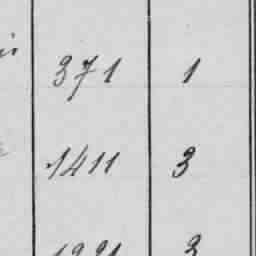 371 1
1411 3